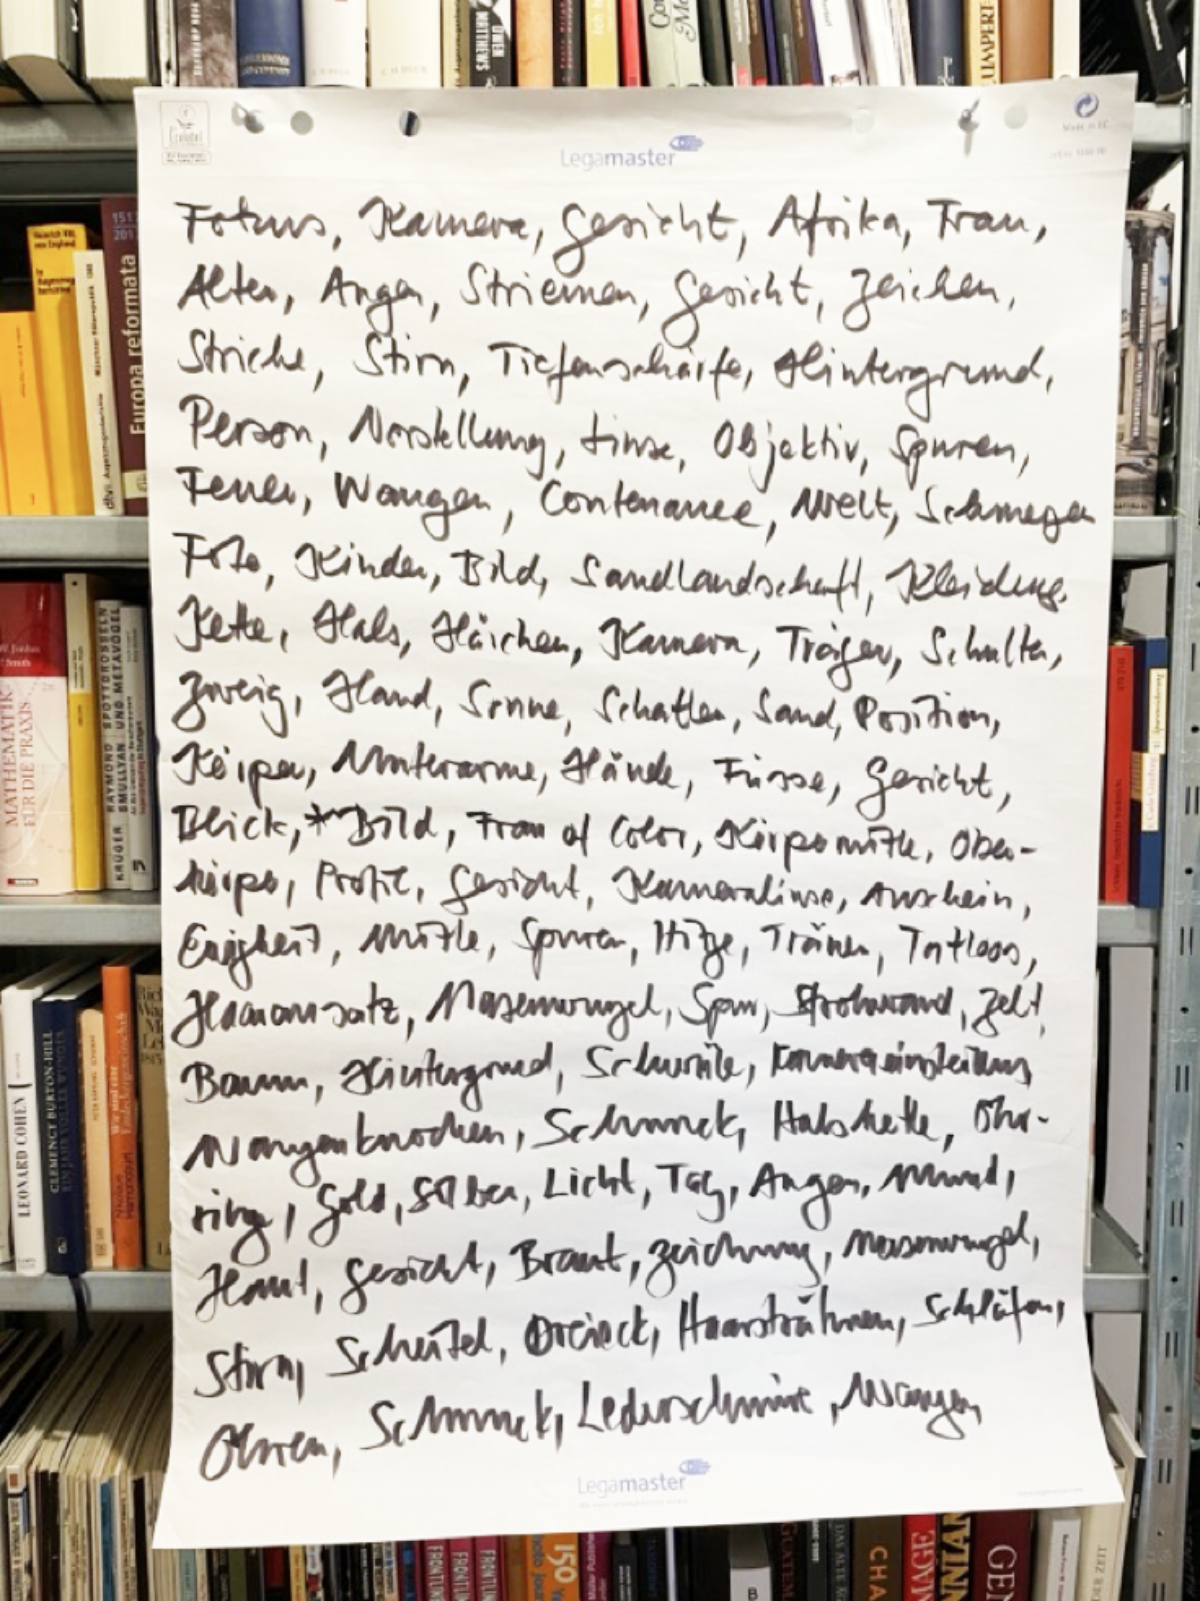 OWEN MATTHEWS
LEMPERT
Legamaster
Fokus, Kamera, Gesicht, Afrika, Frau,
Alter, Augen, Striemen, Gesicht, Zeichen,
Striche, Stirn, Tiefenschärfe, Hintergrund,
Person, Vorstellung, Linse, Objektiv, Spuren,
Feuer, Wangen, Contenance, Welt, Schmegen
Foto, Kinder, Bild, Sandlandschaft, Kleidung,
Kette, Hals, Härchen, Kamera, Träger, Schulter,
Zweig, Hand, Sonne, Schatten, Sand, Position,
Körper, Unterarme, Hände, Füsse, Gesicht,
Blick, * Bild, Frau of Color, Körpermitte, Ober-
körper, Profil, Gesicht, Kameralinse, Anschein,
Ewigkeit, Mitte, Spuren, Hitze, Tränen, Tattoos,
Haaransatz, Nasenwurzel, Spur, Strohwand, Zelt,
Baum, Hintergrund, Schwüle, Kameraeinstellung
Wangenknochen, Schmuck, Halskette, Ohr-
ringe, Gold, Silber, Licht, Tag, Augen, Mund,
Haut, Gesicht, Braut, Zeichnung, Nasenwurzel,
Stirn, Scheitel, Dreieck, Haarsträhnen, Schläfen,
Ohren, Schmuck, Lederschnüre, Wangen
Legamaster
Europa reformata
MATHEMATIK
FÜR DIE PRAXIS
RAYMOND SMULLYAN
SPOTTDROSSELN UND METAVÖGEL
KRÜGER
LEONARD COHEN
CLEMENCY BURTON-HILL
EIN JAHR VOLLER WUNDER
FRONTIUN
FRONTIUN
150
CHA
GEN
DER ZEIT